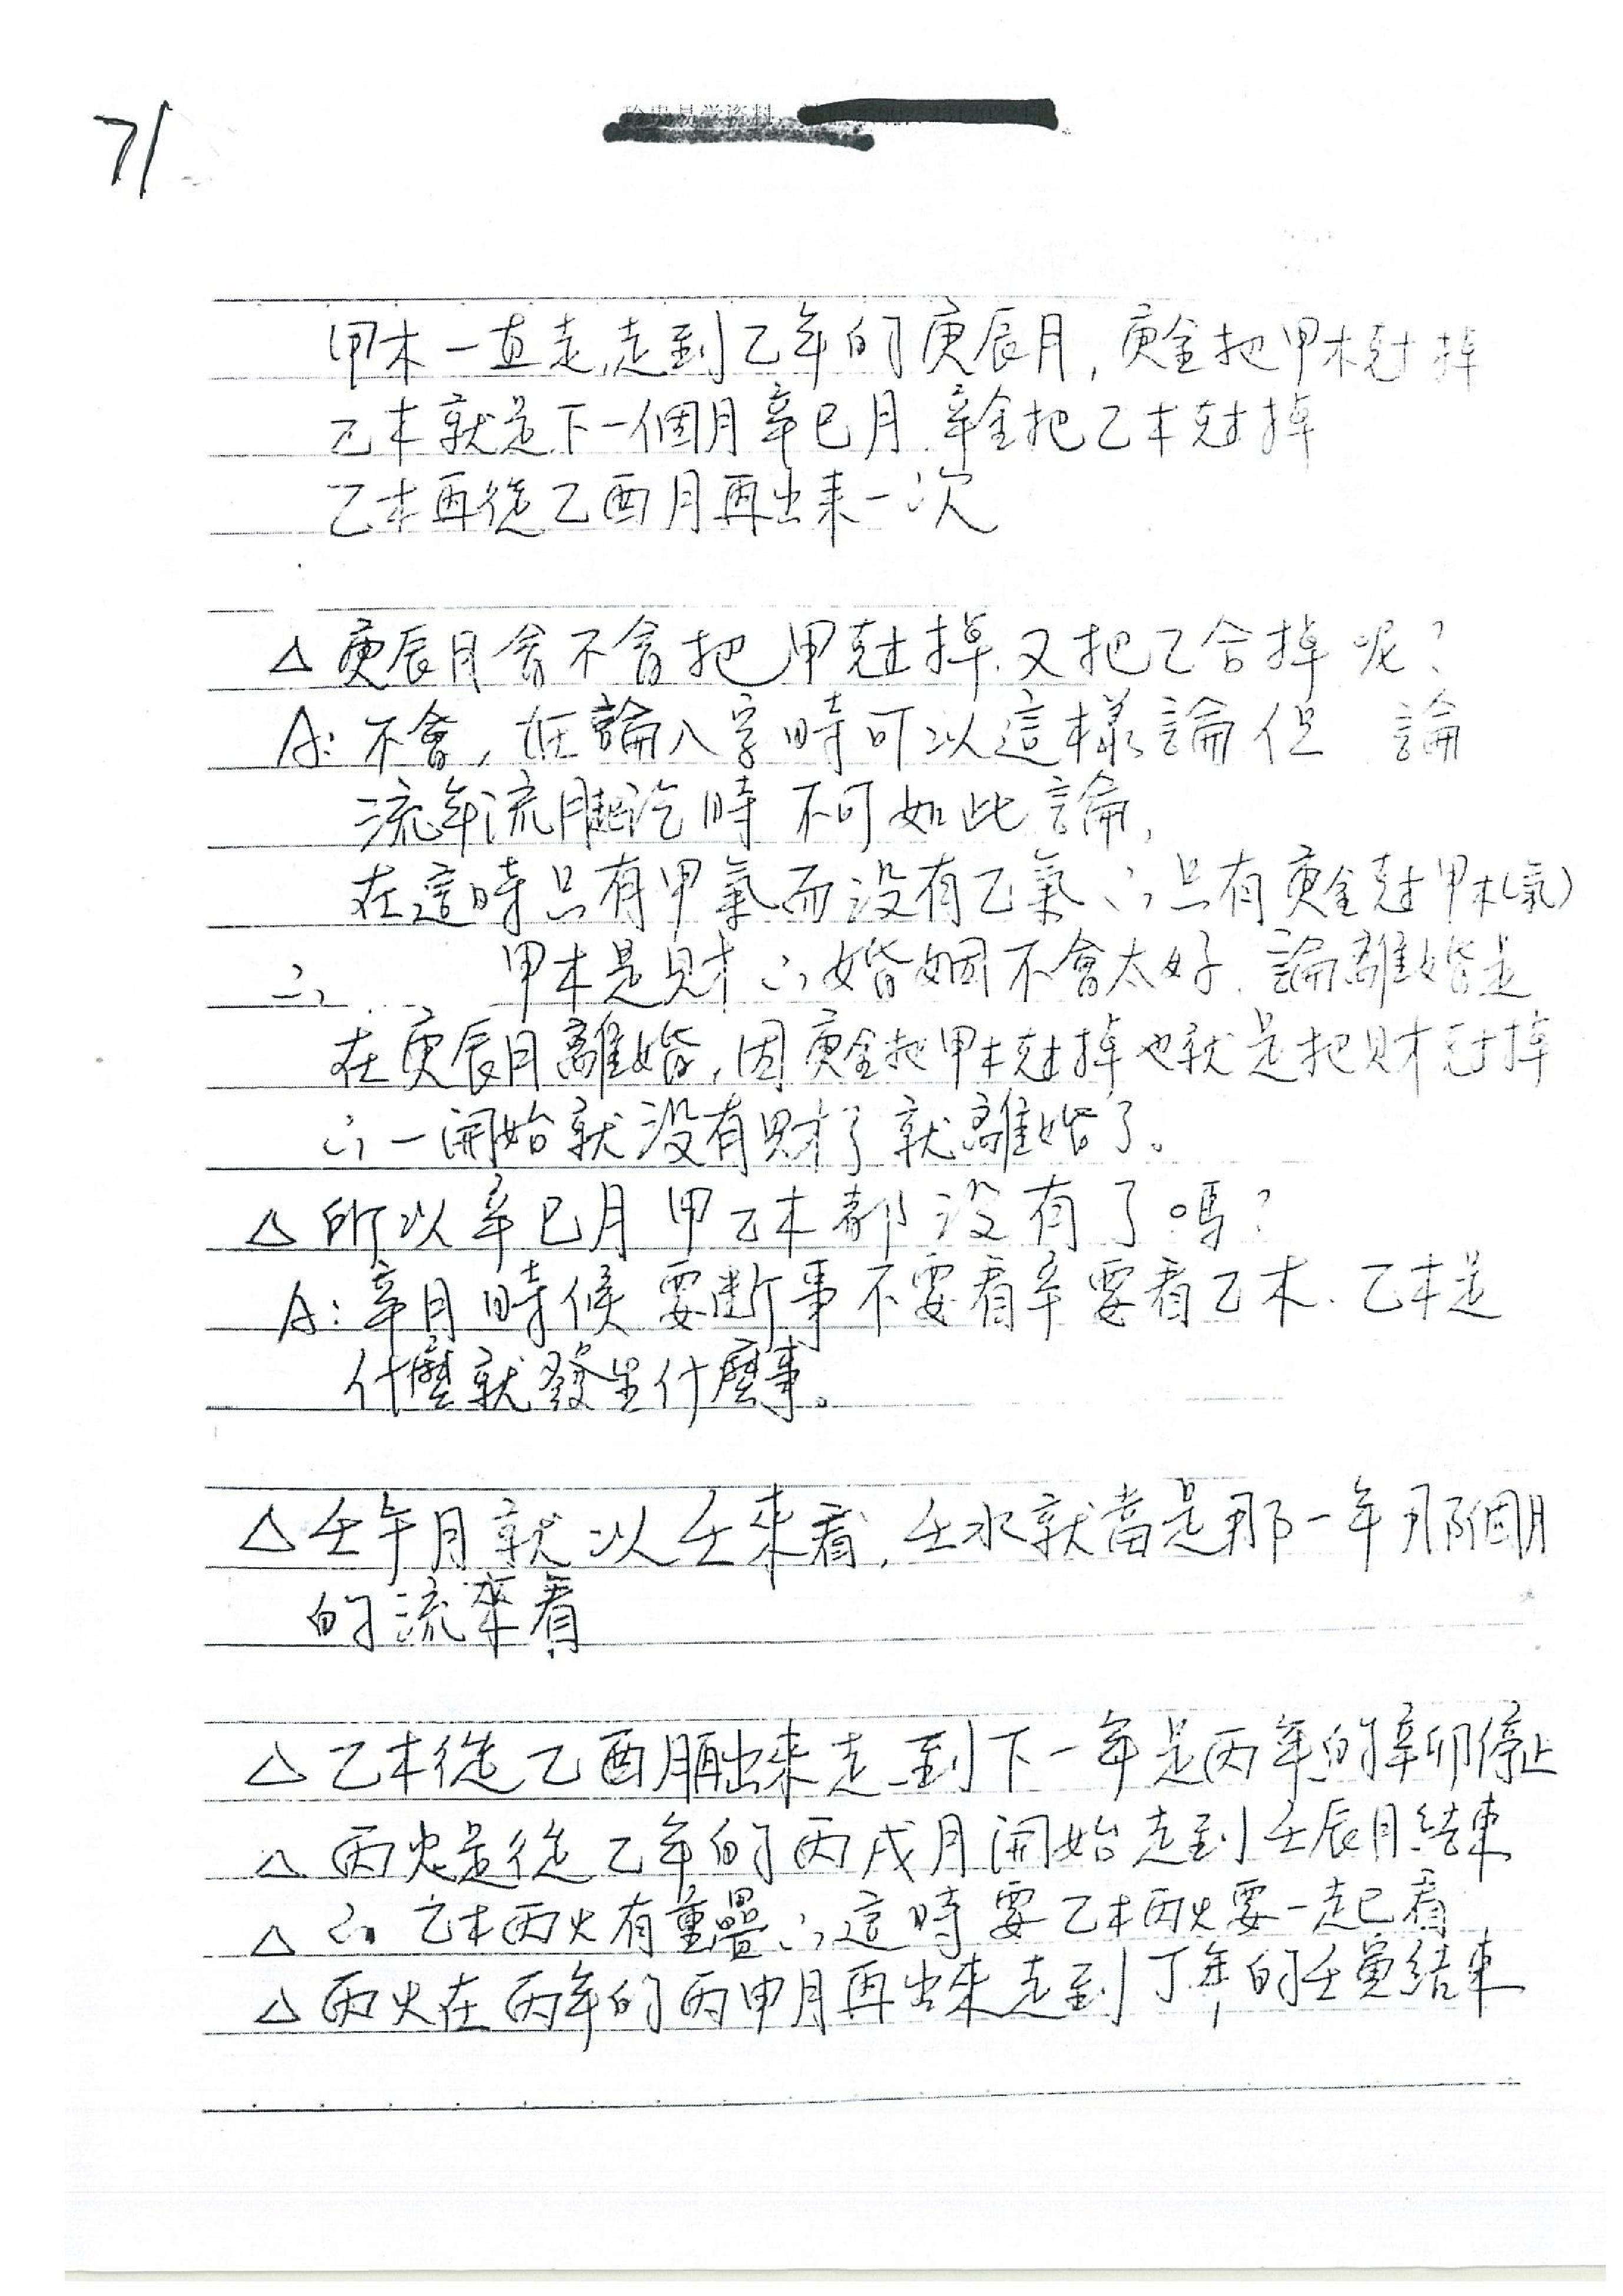 71
甲木一直走,走到乙年的庚辰月,庚金把甲木尅掉
乙木就是下一個月辛巳月.辛金把乙木尅掉
乙木再從乙酉月再出來一次
△庚辰月會不會把甲尅掉.又把乙合掉呢?
A:不會,在論八字時可以這樣論但 論
流年流月起訖時不可如此論,
在這時只有甲氣而没有乙氣∴只有庚金尅甲木(氣)
∴ 甲木是財∴婚姻不會太好.論離婚是
在庚辰月離婚,因庚金把甲木尅掉也就是把財尅掉
∴一開始就没有財了就離婚了。
△所以辛巳月甲乙木都没有了嗎?
A:辛月時候要斷事不要看辛要看乙木.乙木是
什麼就發生什麼事。
△壬午月就以壬來看,壬水就當是那一年那個月
的流來看
△乙木從乙酉月再出來走到下一年是丙年的辛卯停止
△丙火是從乙年的丙戌月開始走到壬辰月結束
△∴乙木丙火有重疊∴這時要乙木丙火要一起看
△丙火在丙年的丙申月再出來走到丁年的壬寅結束